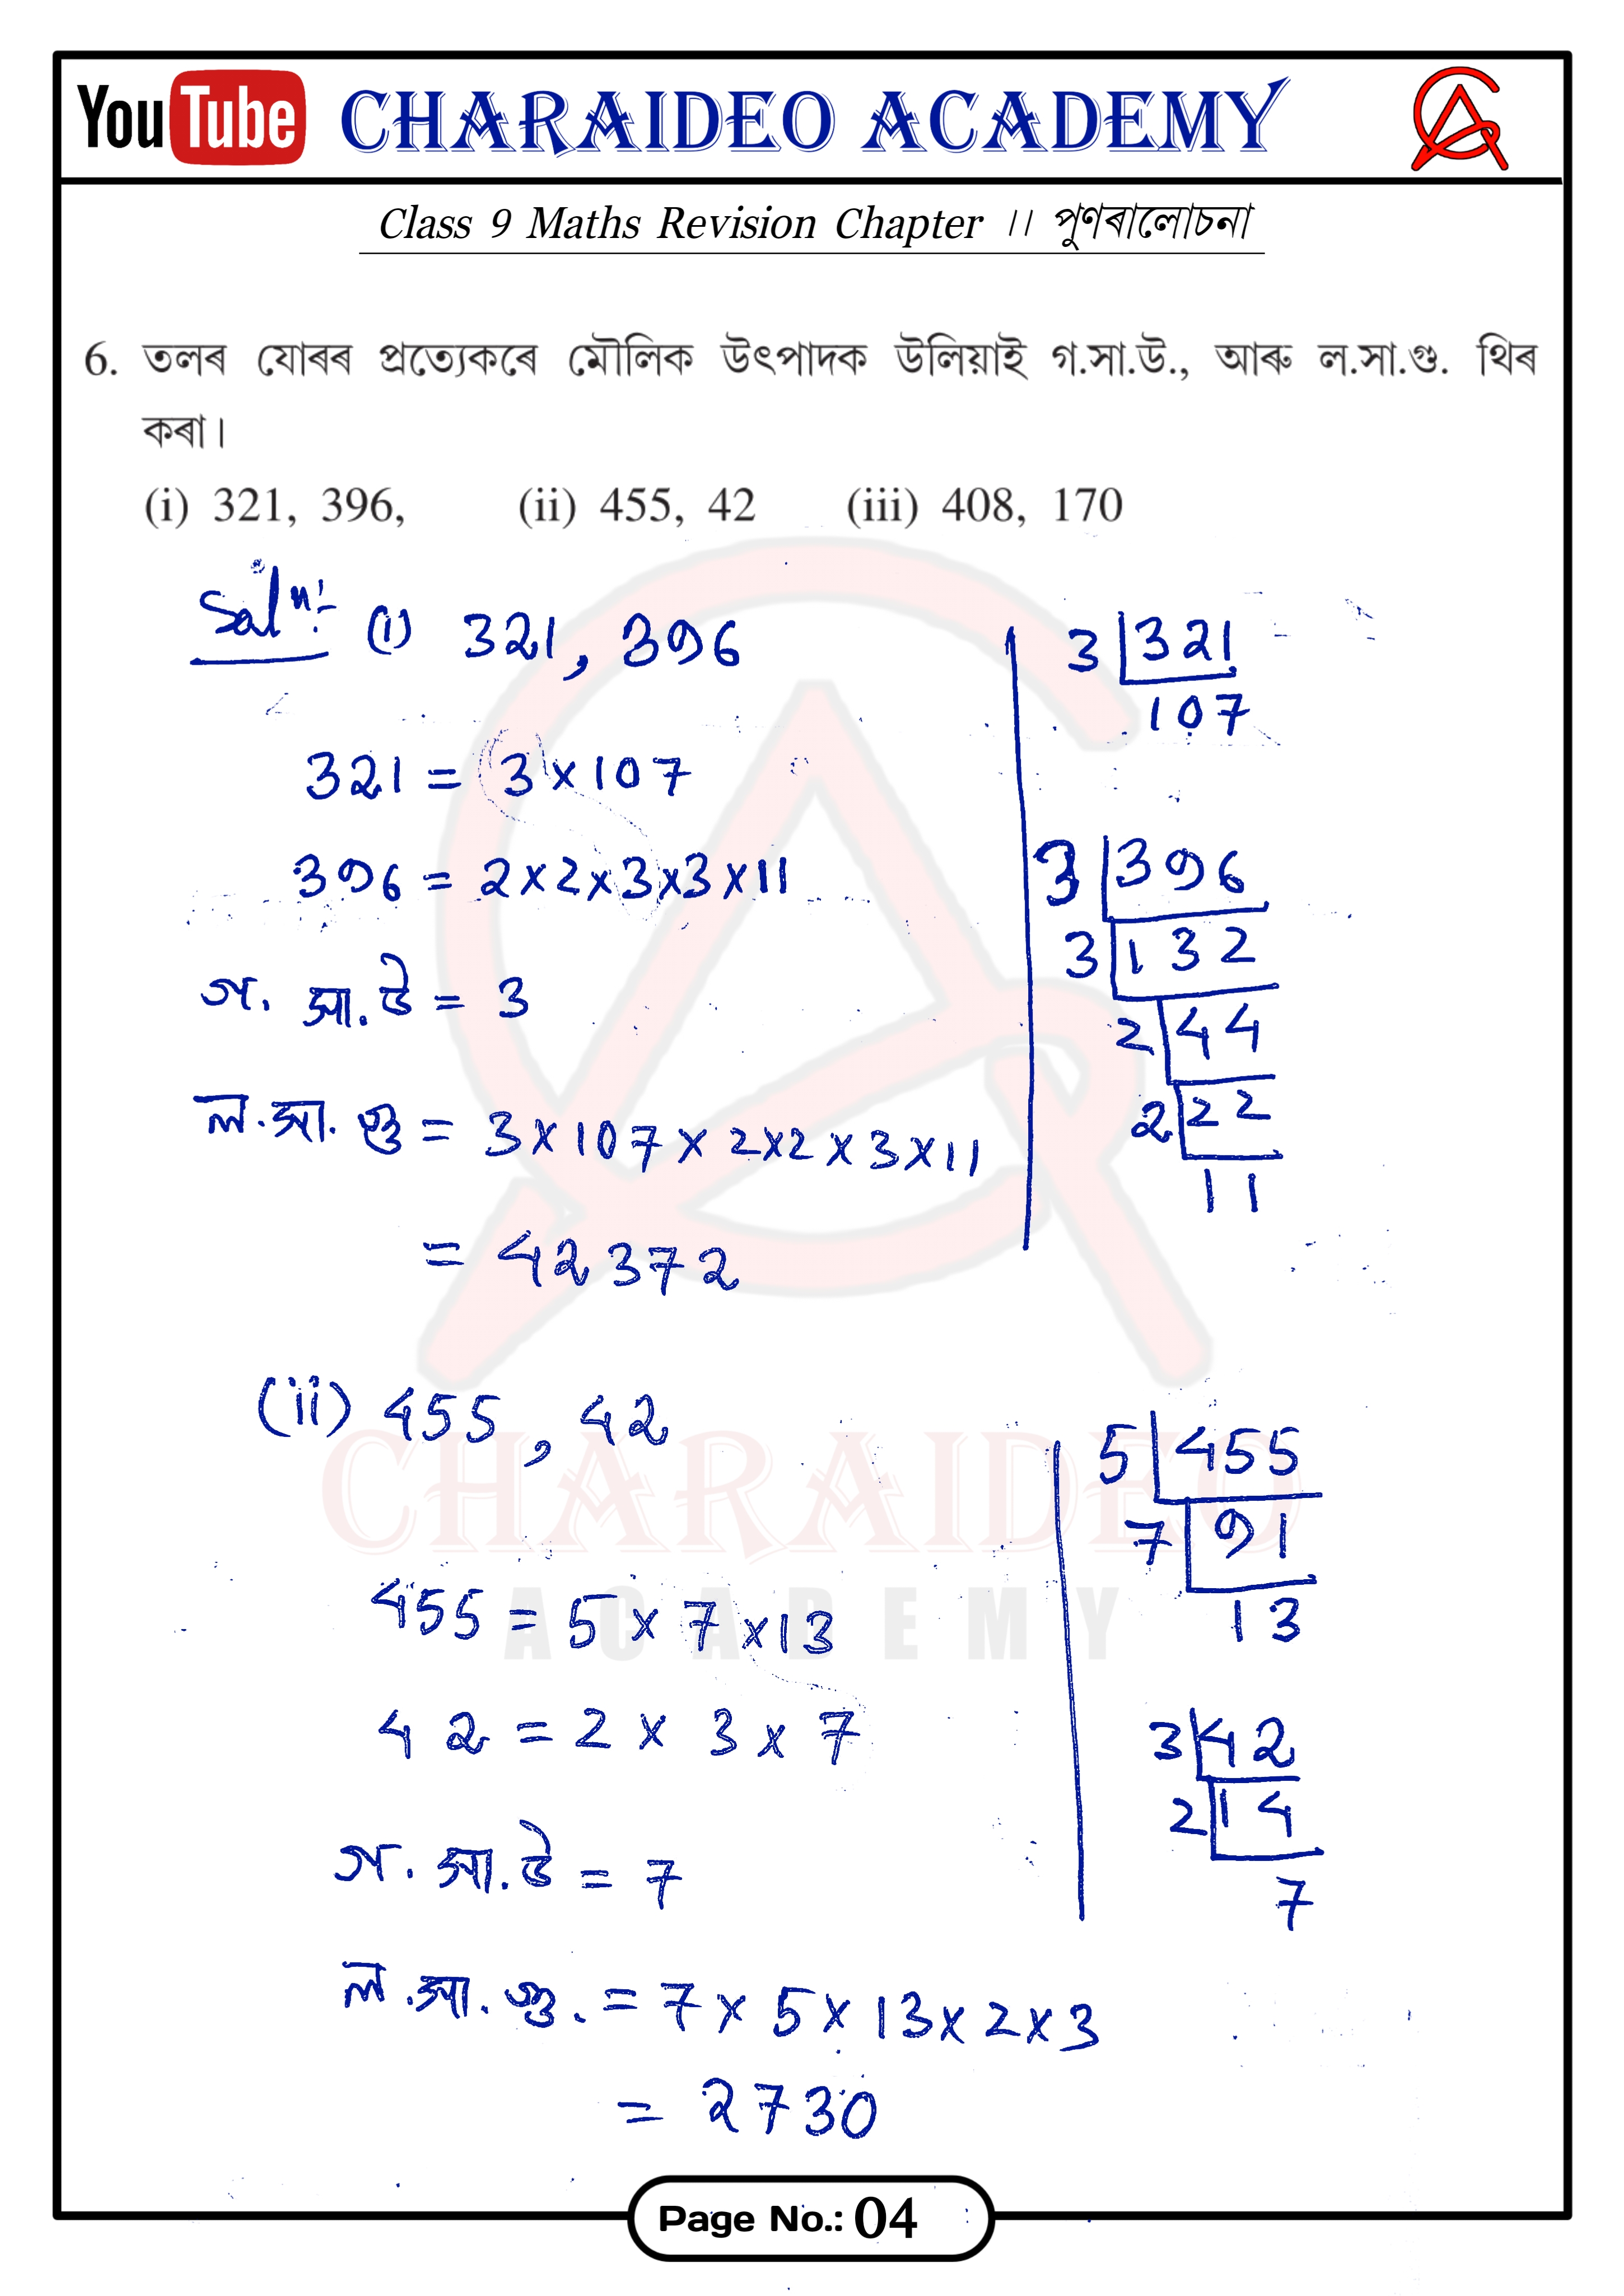 YouTube CHARAIDEO ACADEMY
Class 9 Maths Revision Chapter ।। পুণৰালোচনা
6. তলৰ যোৰৰ প্ৰত্যেকৰে মৌলিক উৎপাদক উলিয়াই গ.সা.উ., আৰু ল.সা.গু. থিৰ
কৰা।
(i) 321, 396, (ii) 455, 42 (iii) 408, 170
Solⁿ:- (i) 321, 396
3 321
107
321 = 3 × 107
396 = 2 × 2 × 3 × 3 × 11
3 396
3 132
2 44
2 22
11
গ. সা. উ = 3
ল. সা. গু = 3 × 107 × 2 × 2 × 3 × 11
= 42372
(ii) 455, 42
5 455
7 91
13
455 = 5 × 7 × 13
42 = 2 × 3 × 7
3 42
2 14
7
গ. সা. উ = 7
ল. সা. গু. = 7 × 5 × 13 × 2 × 3
= 2730
CHARAIDEO
ACADEMY
Page No.: 04